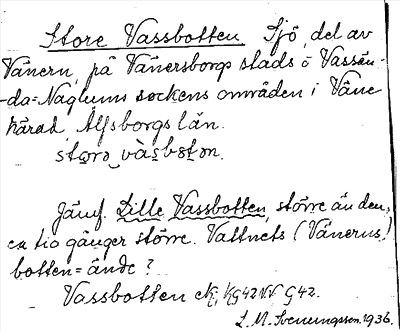 Store Vassbotten. Sjö, del av
Vänern, på Vänersborgs stads o Vassän-
-da=Naglums sockens områden i Väne
härad, Älfsborgs län.
storə vàsbɔtən.
Jämf. Lille Vassbotten, större än den,
ca tio gånger större. Vattnets (Vänerns)
botten=ände?
Vassbotten ek, KG42 NV G42.
L. M. Svenungsson. 1936.